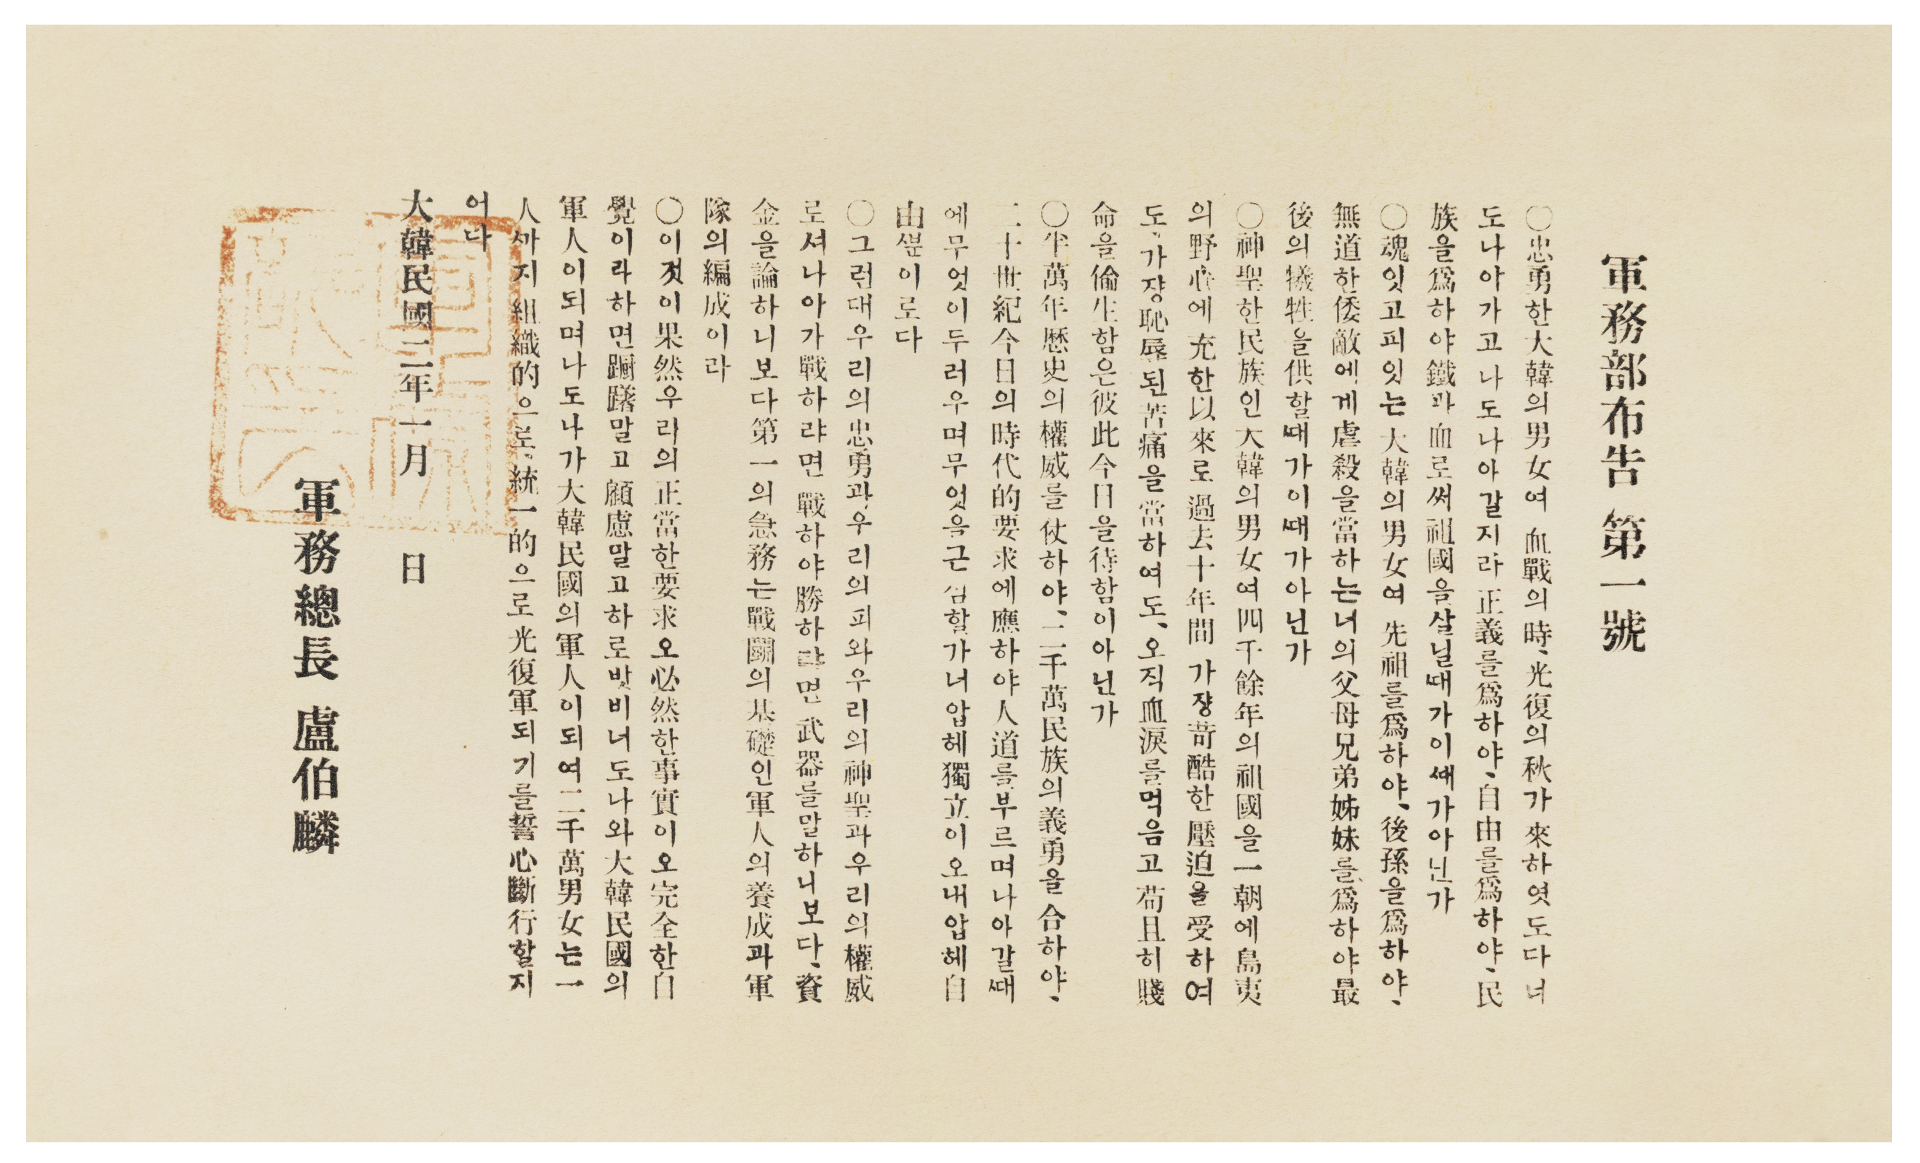 軍務部布告 第一號
〇忠勇한大韓의男女여 血戰의時、光復의秋가來하엿도다너
도나아가고나도나아갈지라正義를爲하야、自由를爲하야、民
族을爲하야鐵과血로써祖國을살닐때가이때가아닌가
〇魂잇고피잇는大韓의男女여 先祖를爲하야、後孫을爲하야、
無道한倭敵에게虐殺을當하는너의父母兄弟姊妹를爲하야最
後의犧牲을供할때가이때가아닌가
〇神聖한民族인大韓의男女여四千餘年의祖國을一朝에島夷
의野心에 充한以來로 過去十年間 가쟝苛酷한壓迫을受하여
도、가쟝恥辱된苦痛을當하여도、오직血淚를먹음고 苟且히賤
命을偸生함은彼此今日을待함이아닌가
〇半萬年歷史의權威를仗하야、二千萬民族의義勇을合하야、
二十世紀今日의時代的要求에應하야人道를부르며나아갈때
에무엇이두러우며무엇을근심할가너압헤獨立이오내압헤自
由뿐이로다
〇그런대우리의忠勇과우리의피와우리의神聖과우리의權威
로셔나아가戰하랴면 戰하야勝하랴면 武器를말하니보다、資
金을論하니보다第一의急務는戰鬪의基礎인軍人의養成과軍
隊의編成이라
〇이것이果然우리의正當한要求오必然한事實이오完全한自
覺이라하면躕躇말고顧慮말고하로밧비너도나와大韓民國의
軍人이되며나도나가大韓民國의軍人이되여二千萬男女는一
人까지組織的으로、統一的으로光復軍되기를誓心斷行할지
어다
大韓民國二年一月 日
軍務總長 盧伯麟